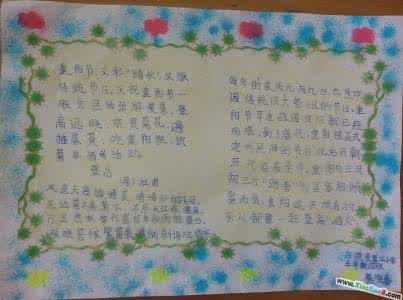 重阳节,又称"踏秋",汉族
传统节日。庆祝重阳节一
般会包括出游赏景、登
高远眺、观赏菊花、遍
插茱萸、吃重阳糕、饮
菊花酒等活动。
登高
(唐)杜甫
风急天高猿啸哀,渚清沙白鸟飞回。
无边落木萧萧下,不尽长江滚滚来。
万里悲秋常作客,百年多病独登台。
艰难苦恨繁霜鬓,潦倒新停浊酒杯。
每年的农历九月九日,也是中
国传统四大祭祖的节日。重
阳节早在战国时期就已经
形成,到了唐代,重阳被正式
定为民间的节日,此后历朝
历代沿袭至今。重阳与三月
初三日"踏春"皆是家族倾
室而出,重阳这天所有
亲人都要一起登高"避灾
www.XiaoBao8.com